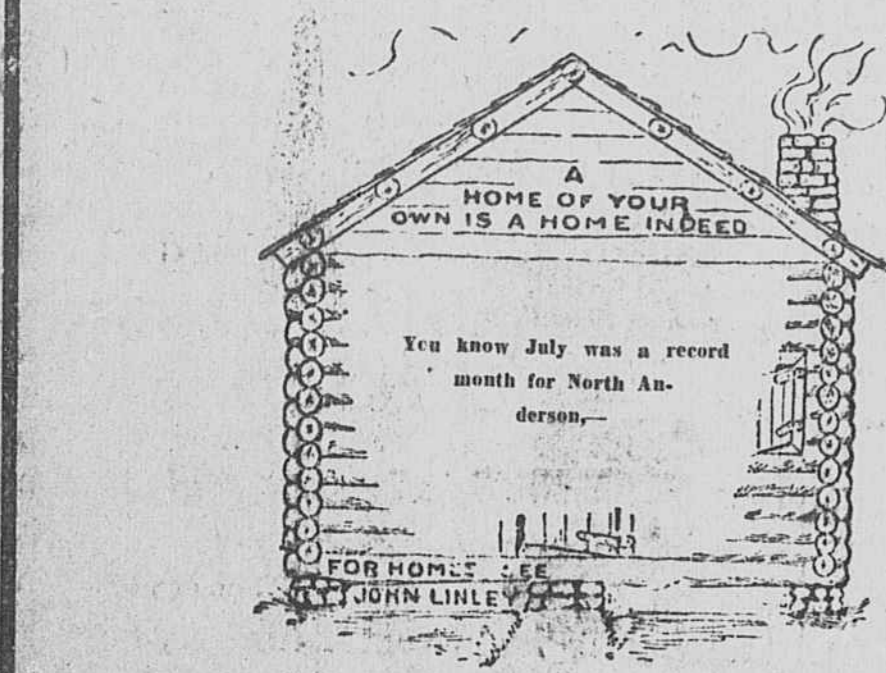 A
HOME OF YOUR
OWN IS A HOME INDEED
You know July was a record
month for North An-
derson,—
FOR HOMES
JOHN LINLEY